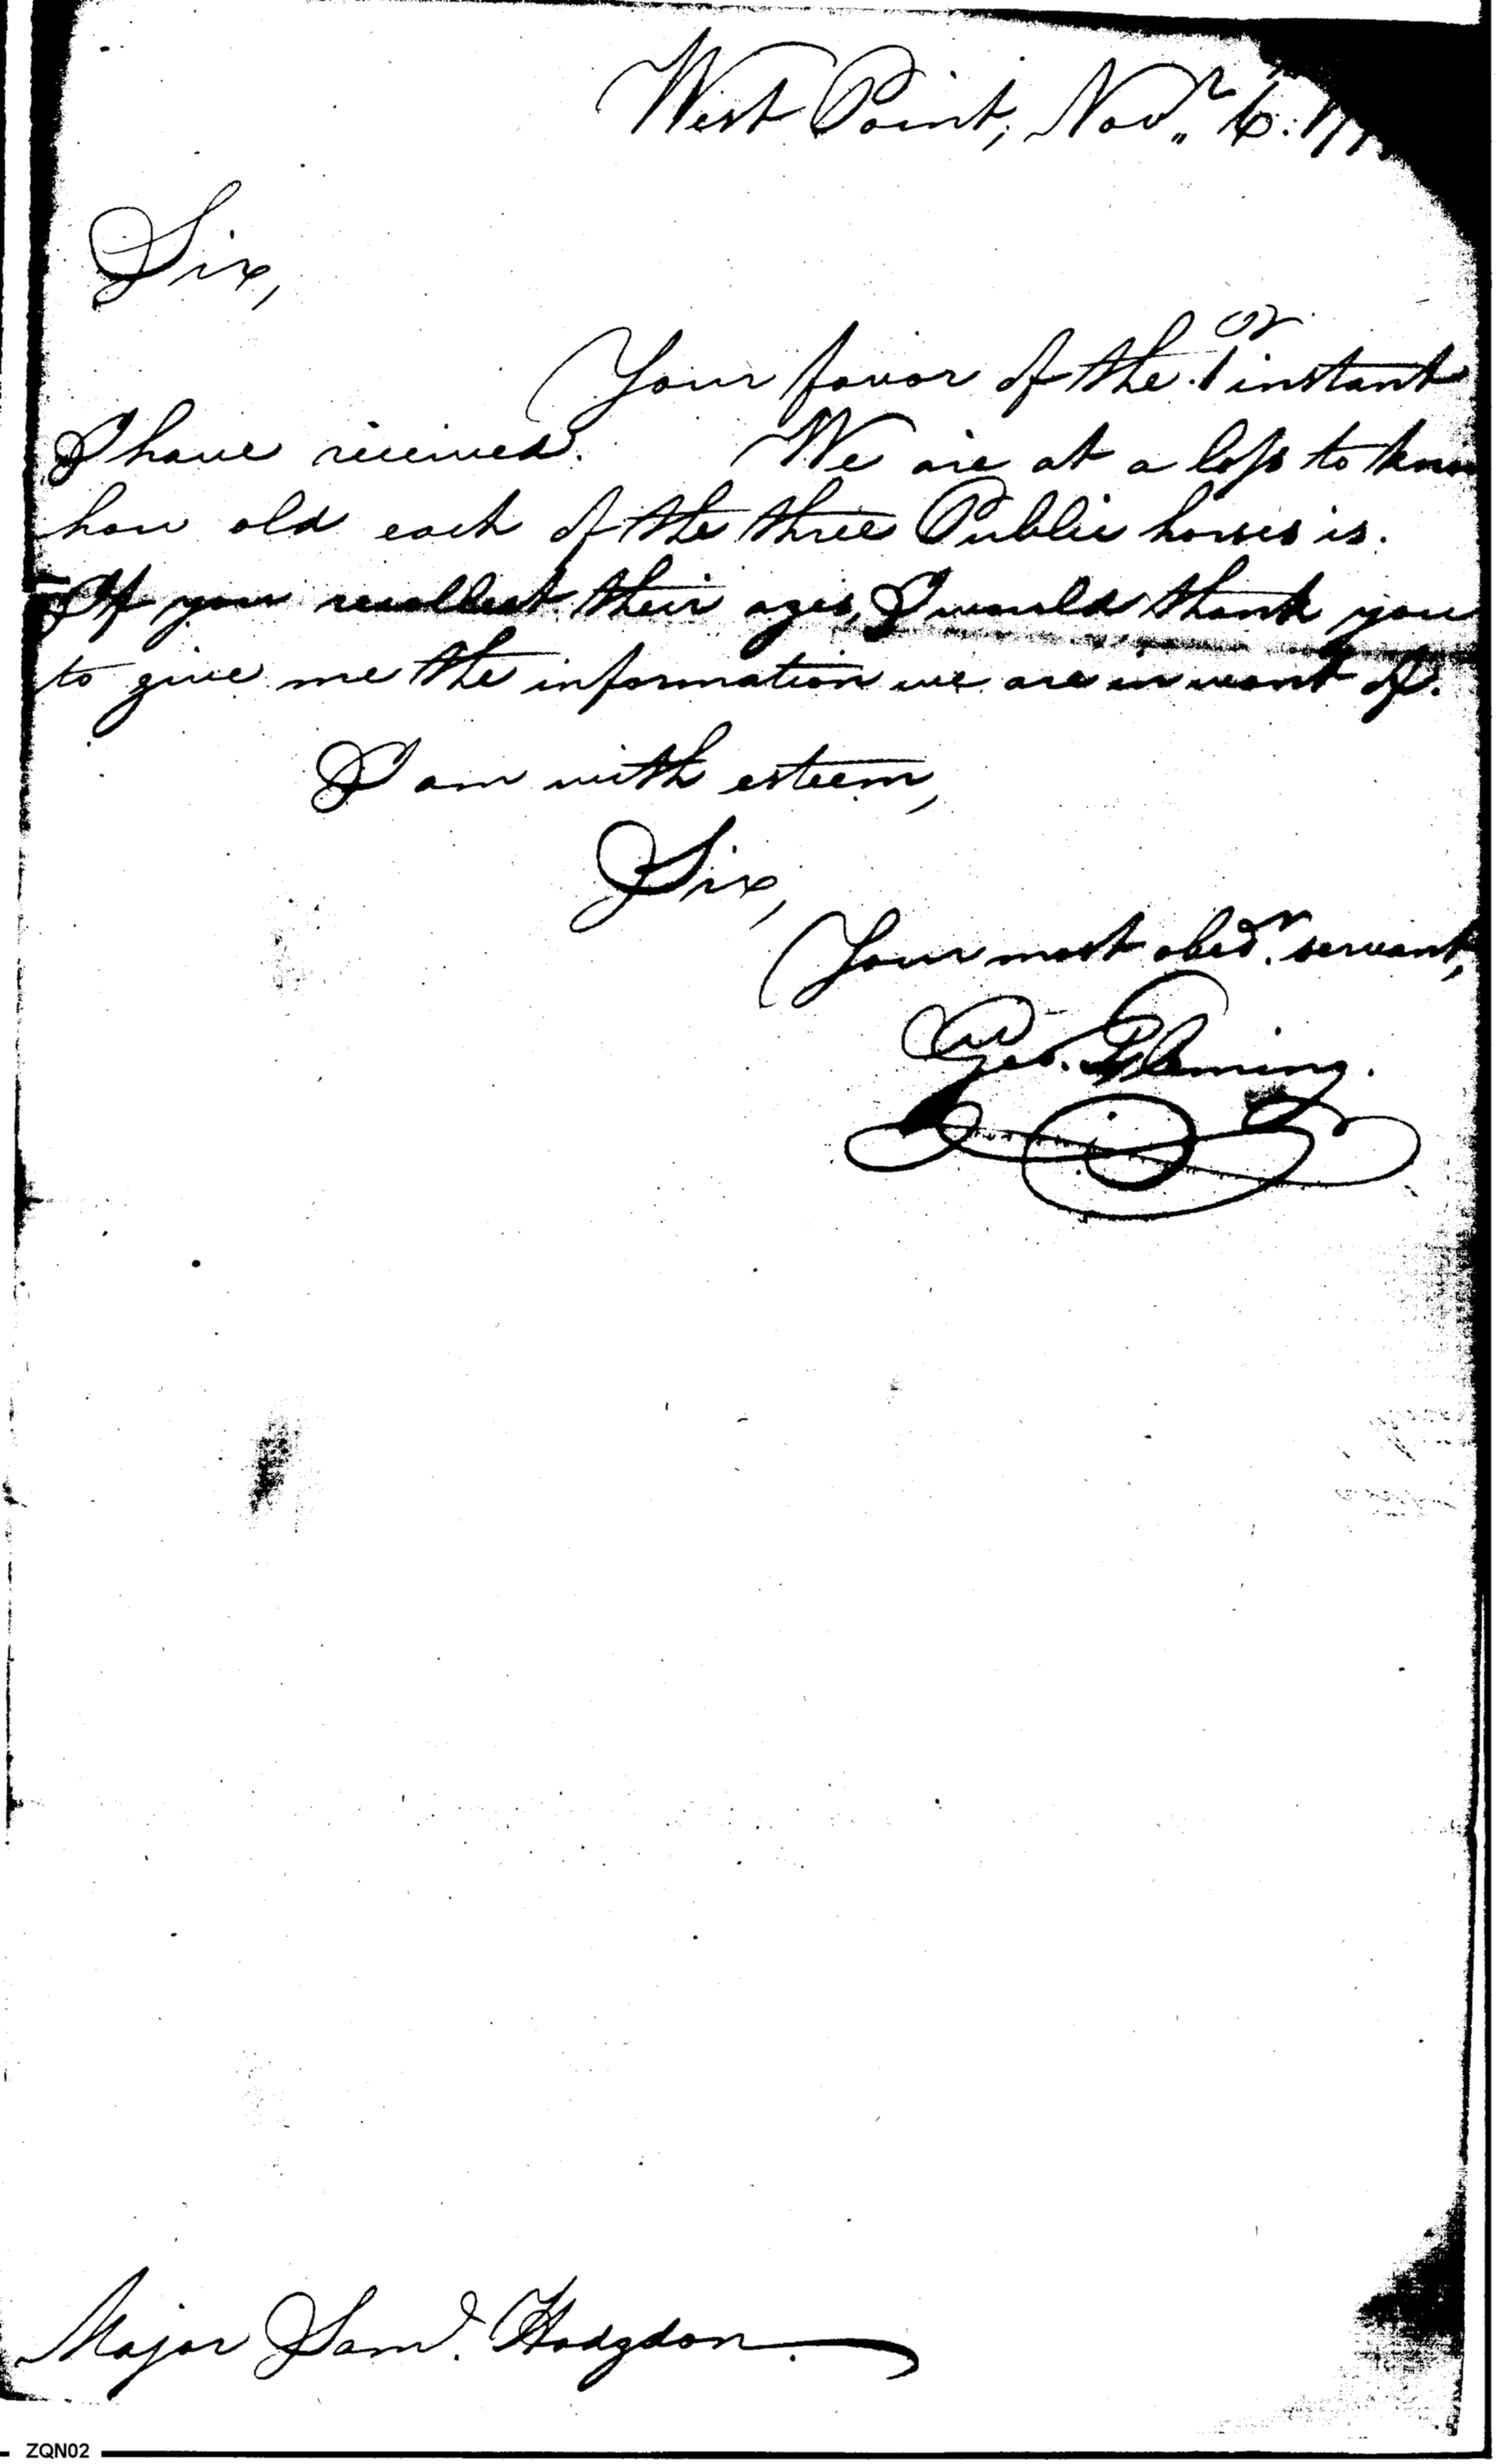 West Point, Novr. 6:
Sir,
Your favor of the 1 instant
I have received. We are at a loss to know
how old each of the three Public horses is.
If you recollect their ages, I would thank you
to give me the information we are in want of.
I am with esteem,
Sir,
Your most obedt. servant,
Geo. Fleming.
Major Saml. Hodgdon.
ZQN02